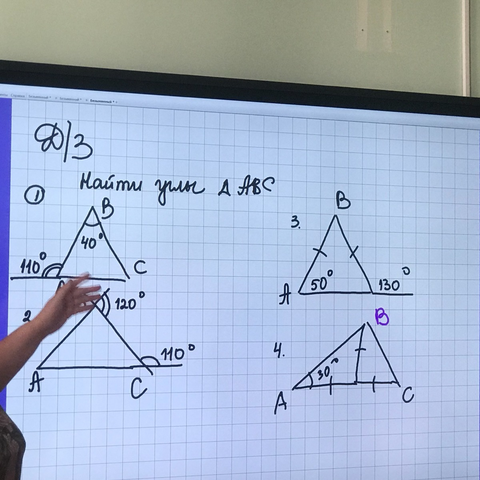 Д/З
Найти углы Δ ABC
1
B
40°
110°
C
2.
120°
A
110°
C
3.
B
A
50°
130°
4.
B
30°
A
C